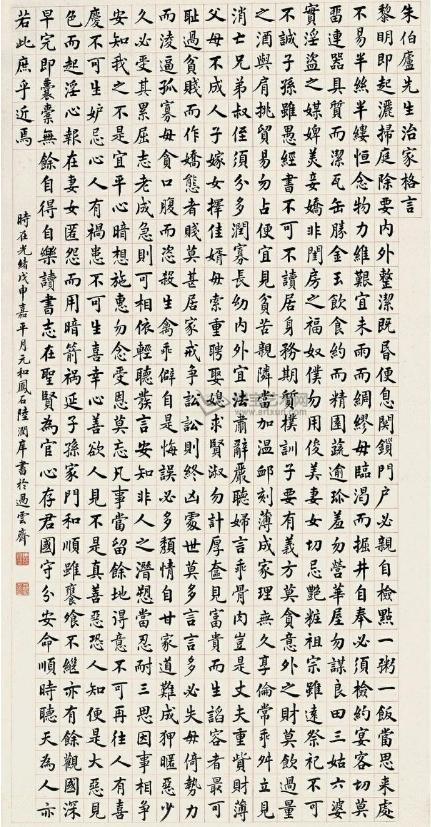 朱伯廬先生治家格言
黎明即起灑掃庭除要內外整潔既昏便息關鎖門戶必親自檢點一粥一飯當思來處
不易半絲半縷恒念物力維艱宜未雨而綢繆毋臨渴而掘井自奉必須檢約宴客切莫
留連器具質而潔瓦缶勝金玉飲食約而精園蔬逾珍羞勿營華屋勿謀良田三姑六婆
實淫盜之媒婢美妾嬌非閨房之福奴僕勿用俊美妻女切忌艷粧祖宗雖遠祭祀不可
不誠子孫雖愚經書不可不讀居身務期質樸訓子要有義方莫貪意外之財莫飲過量
之酒與肩挑貿易勿占便宜見貧苦親隣當加溫卹刻薄成家理無久享倫常乖舛立見
消亡兄弟叔侄須分多潤寡長幼內外宜法肅辭嚴聽婦言乖骨肉豈是丈夫重貲財薄
父母不成人子嫁女擇佳婿毋索重聘娶媳求賢淑勿計厚奩見富貴而生諂容者最可
恥過貧賤而作驕態者賤莫甚居家戒爭訟訟則終凶處世莫多言言多必失毋倚勢力
而淩逼孤寡毋貪口腹而恣殺生禽乖僻自是悔誤必多頹惰自甘家道難成狎暱惡少
久必受其累屈志老成急則可相依輕聽發言安知非人之譖愬當忍耐三思因事相爭
安知我之不是宜平心暗想施惠勿念受恩莫忘凡事當留餘地得意不可再往人有喜
慶不可生妒忌心人有禍患不可生喜幸心善欲人見不是真善惡恐人知便是大惡見
色而起淫心報在妻女匿怨而用暗箭禍延子孫家門和順雖饔飧不繼亦有餘歡國課
早完即囊橐無餘自得自樂讀書志在聖賢為官心存君國守分安命順時聽天為人亦
若此庶乎近焉
時在光緒戊申嘉平月元和鳳石陸潤庠書於過雲齋